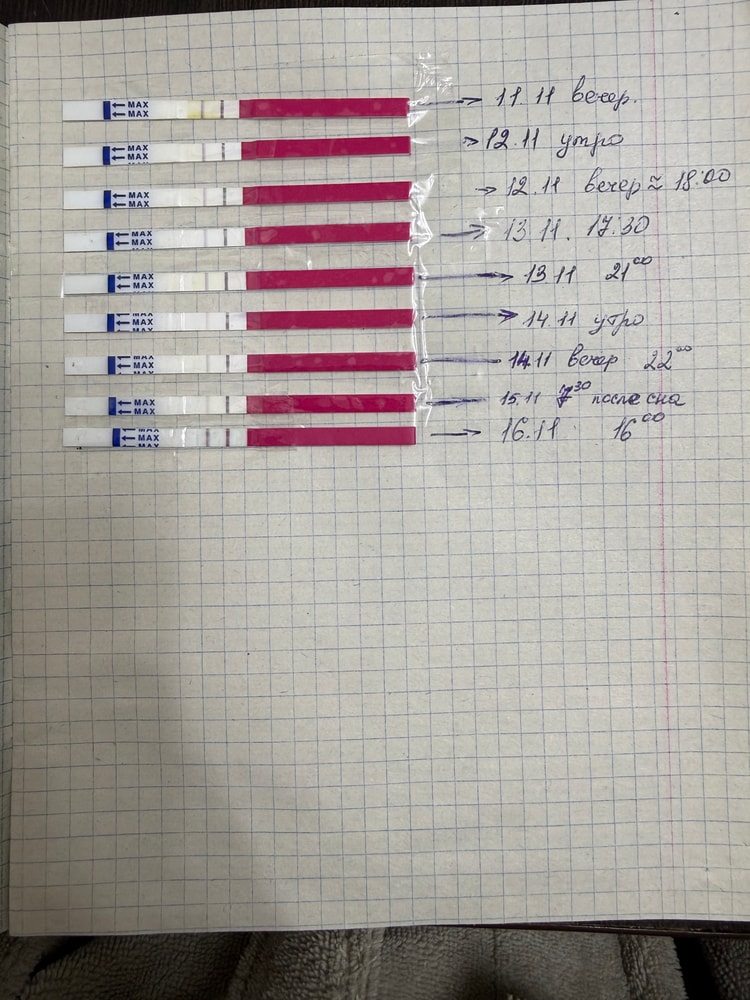 ← MAX
← MAX
→ 11.11 вечер.
← MAX
← MAX
→ 12.11 утро
← MAX
← MAX
→ 12.11 вечер ≈ 18:00
← MAX
← MAX
→ 13.11. 17:30
← MAX
← MAX
→ 13.11 21⁰⁰
← MAX
← MAX
→ 14.11 утро
← MAX
← MAX
14.11 вечер 22⁰⁰
← MAX
← MAX
15.11 7³⁰ после сна
← MAX
← MAX
→ 16.11 16⁰⁰